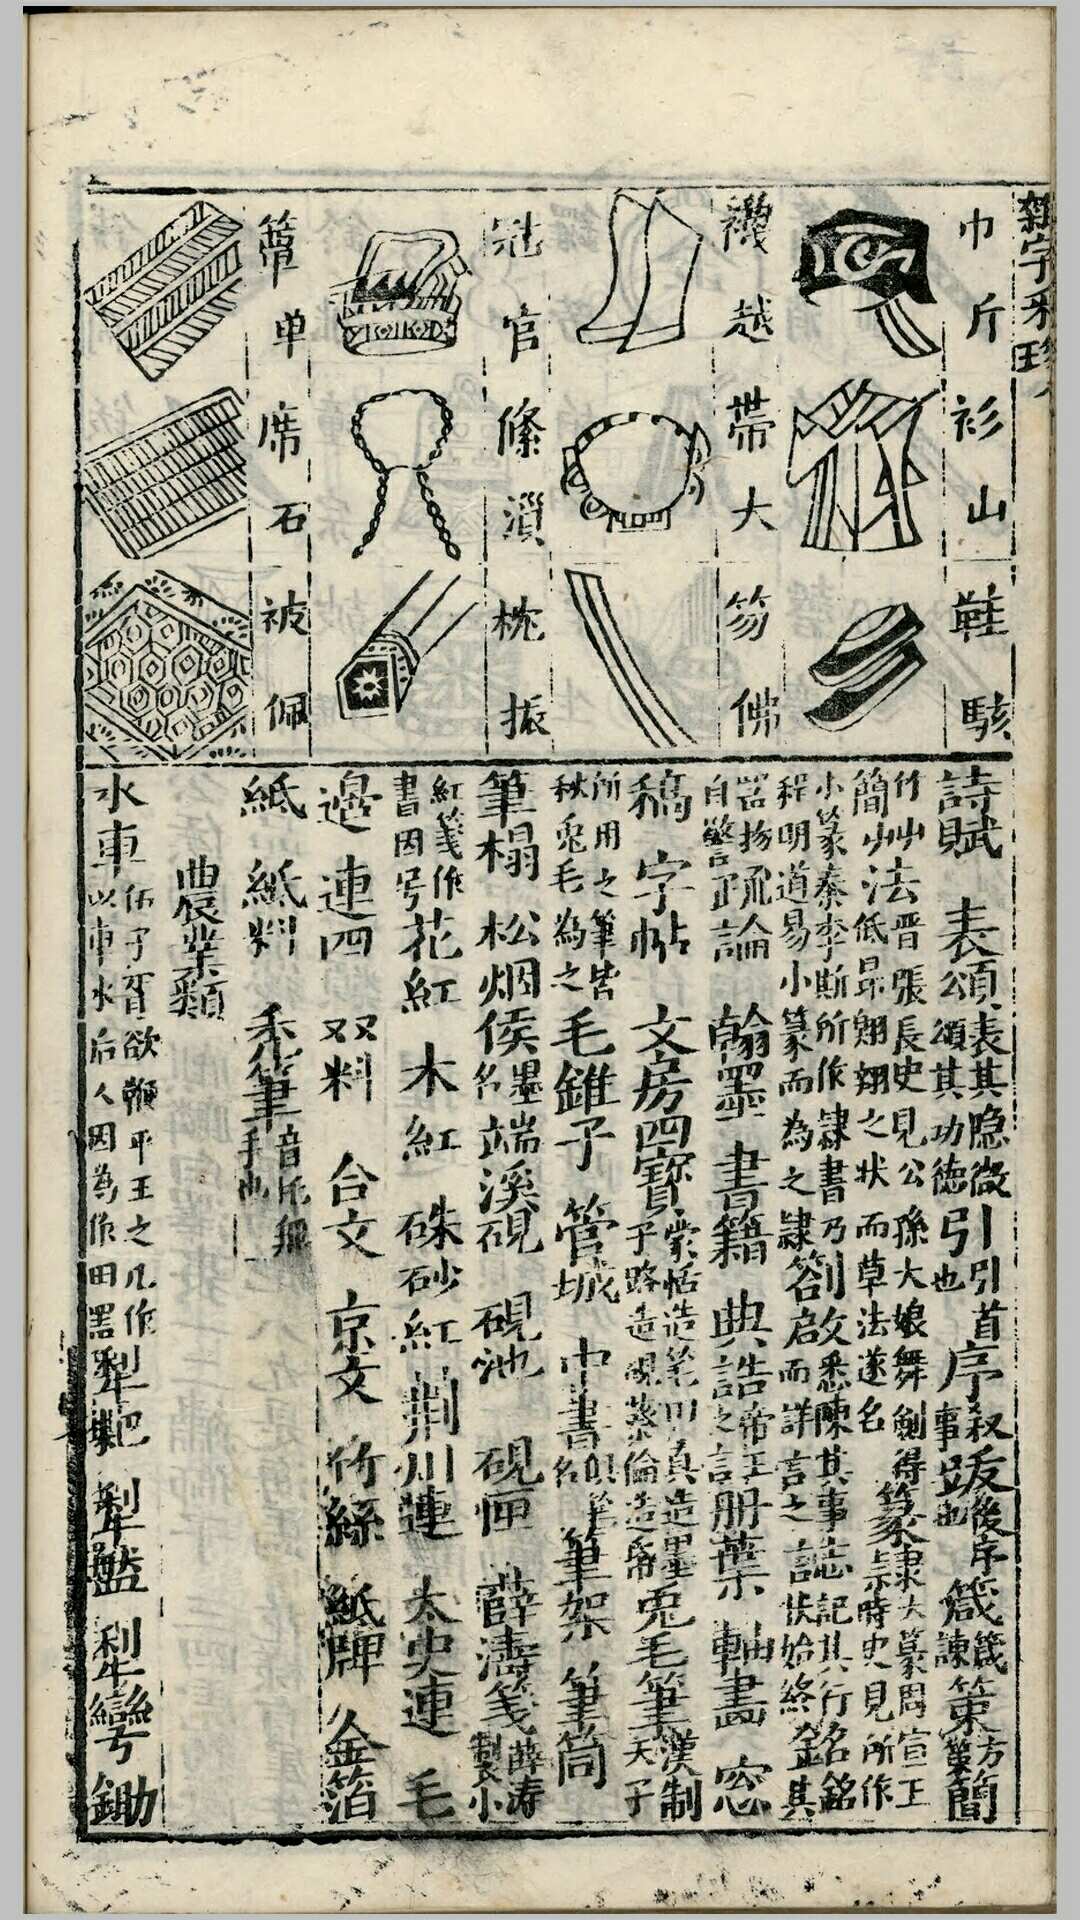 巾 斤
衫 山
鞋 駭
襪 越
帶 大
笏 佛
冠 官
絛 滔
枕 振
簟 单
席 石
被 佩
詩賦 表頌表其隐微頌其功德 引引首也 序叙事也 跋後序 箴箴諫 策方策 簡
竹簡 艸法晋張長史見公孫大娘舞劍得低昂翱翔之状而草法遂名 篆隷大篆周宣王時史
小篆秦李斯所作隷書乃程明道易小篆而為之隷 劄啟悉陳其事而詳言之 誌記其行言状始終 銘銘其
自警 疏論 翰墨 書籍 典誥帝王之言 册葉 軸畵 窓
稿 字帖 文房四寳蒙恬造笔 造墨子路造硯蔡倫造紙 兎毛筆漢制天子
所用之筆皆秋兎毛為之 毛錐子 管城 中書俱笔名 筆架 筆筒
筆榻 松烟侯墨名 端溪硯 硯池 硯匣 薛濤笺薛涛製小
紅笺作書因号 花紅 木紅 硃砂紅 荆川連 太史連 毛
邉 連四 双料 台文 京文 竹絲 紙牌 金箔
紙 紙料 秃筆
農業類
水車伍子胥欲鞭平王之尸作以車水后人因為作田器 犁耙 犁 犁 鋤